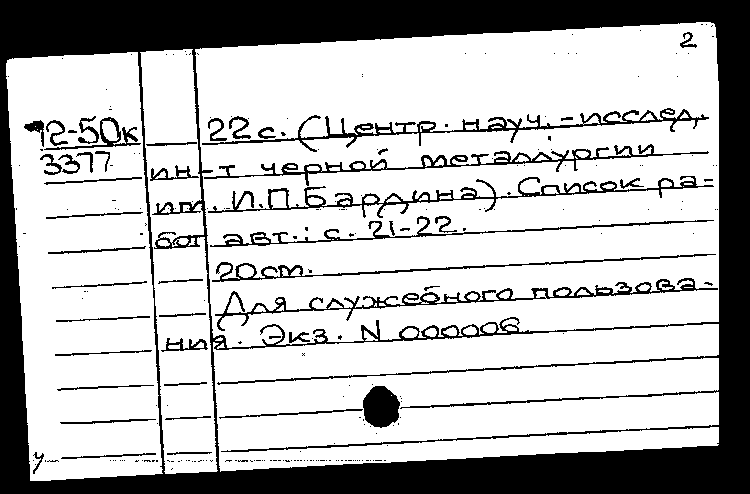 2
72-50к 22 с. (Центр. науч.-исслед.
3377 ин-т черной металлургии
им. И.П.Бардина). Список ра=
бот авт.: с. 21-22.
20см.
Для служебного пользова-
ния. Экз. N 000006.